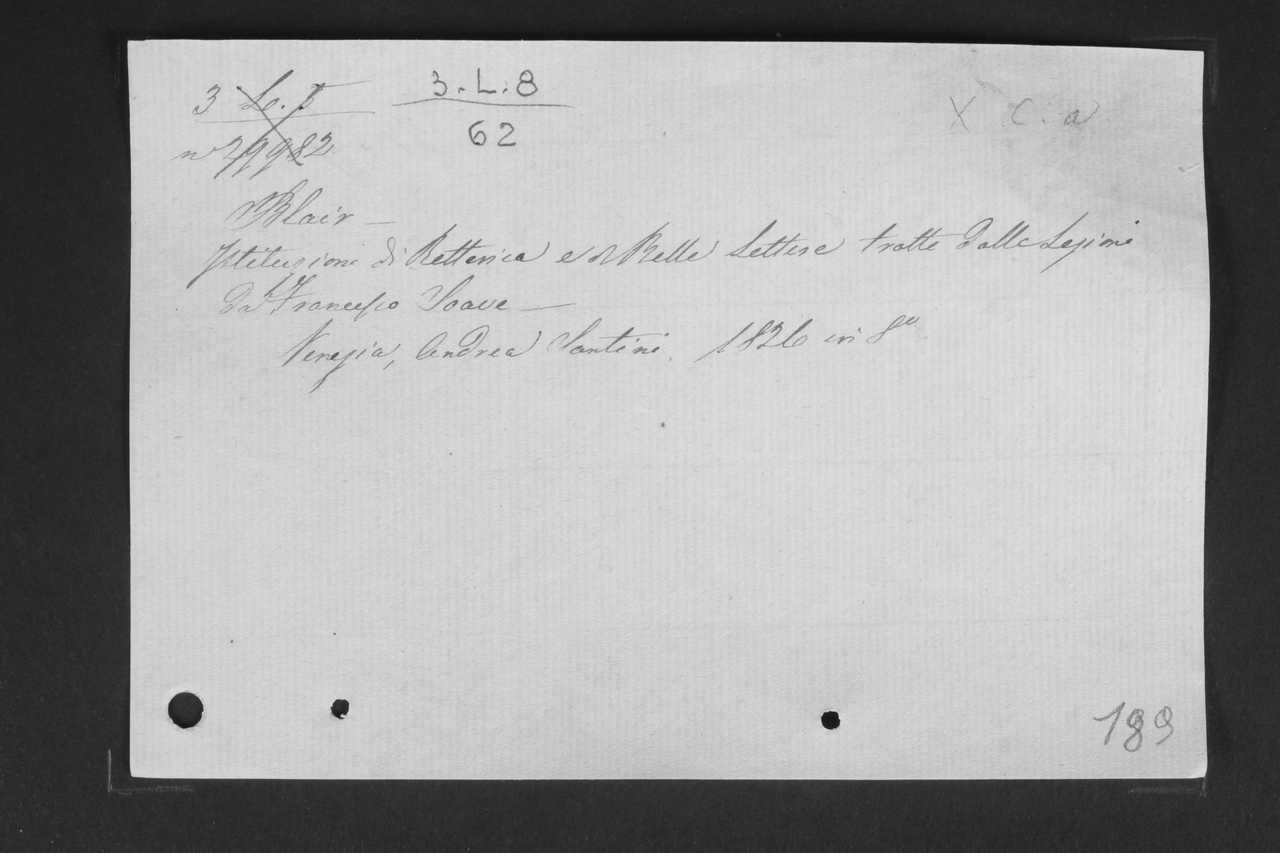 3 Lo. 5
3.-L.-8
X C. a
62
Blair —
Istituzioni di Retterica e di Belle Lettere tratte dalle Lezioni
da Francesco Soave —
Venezia, Andrea Santini. 1826 in 8°
189